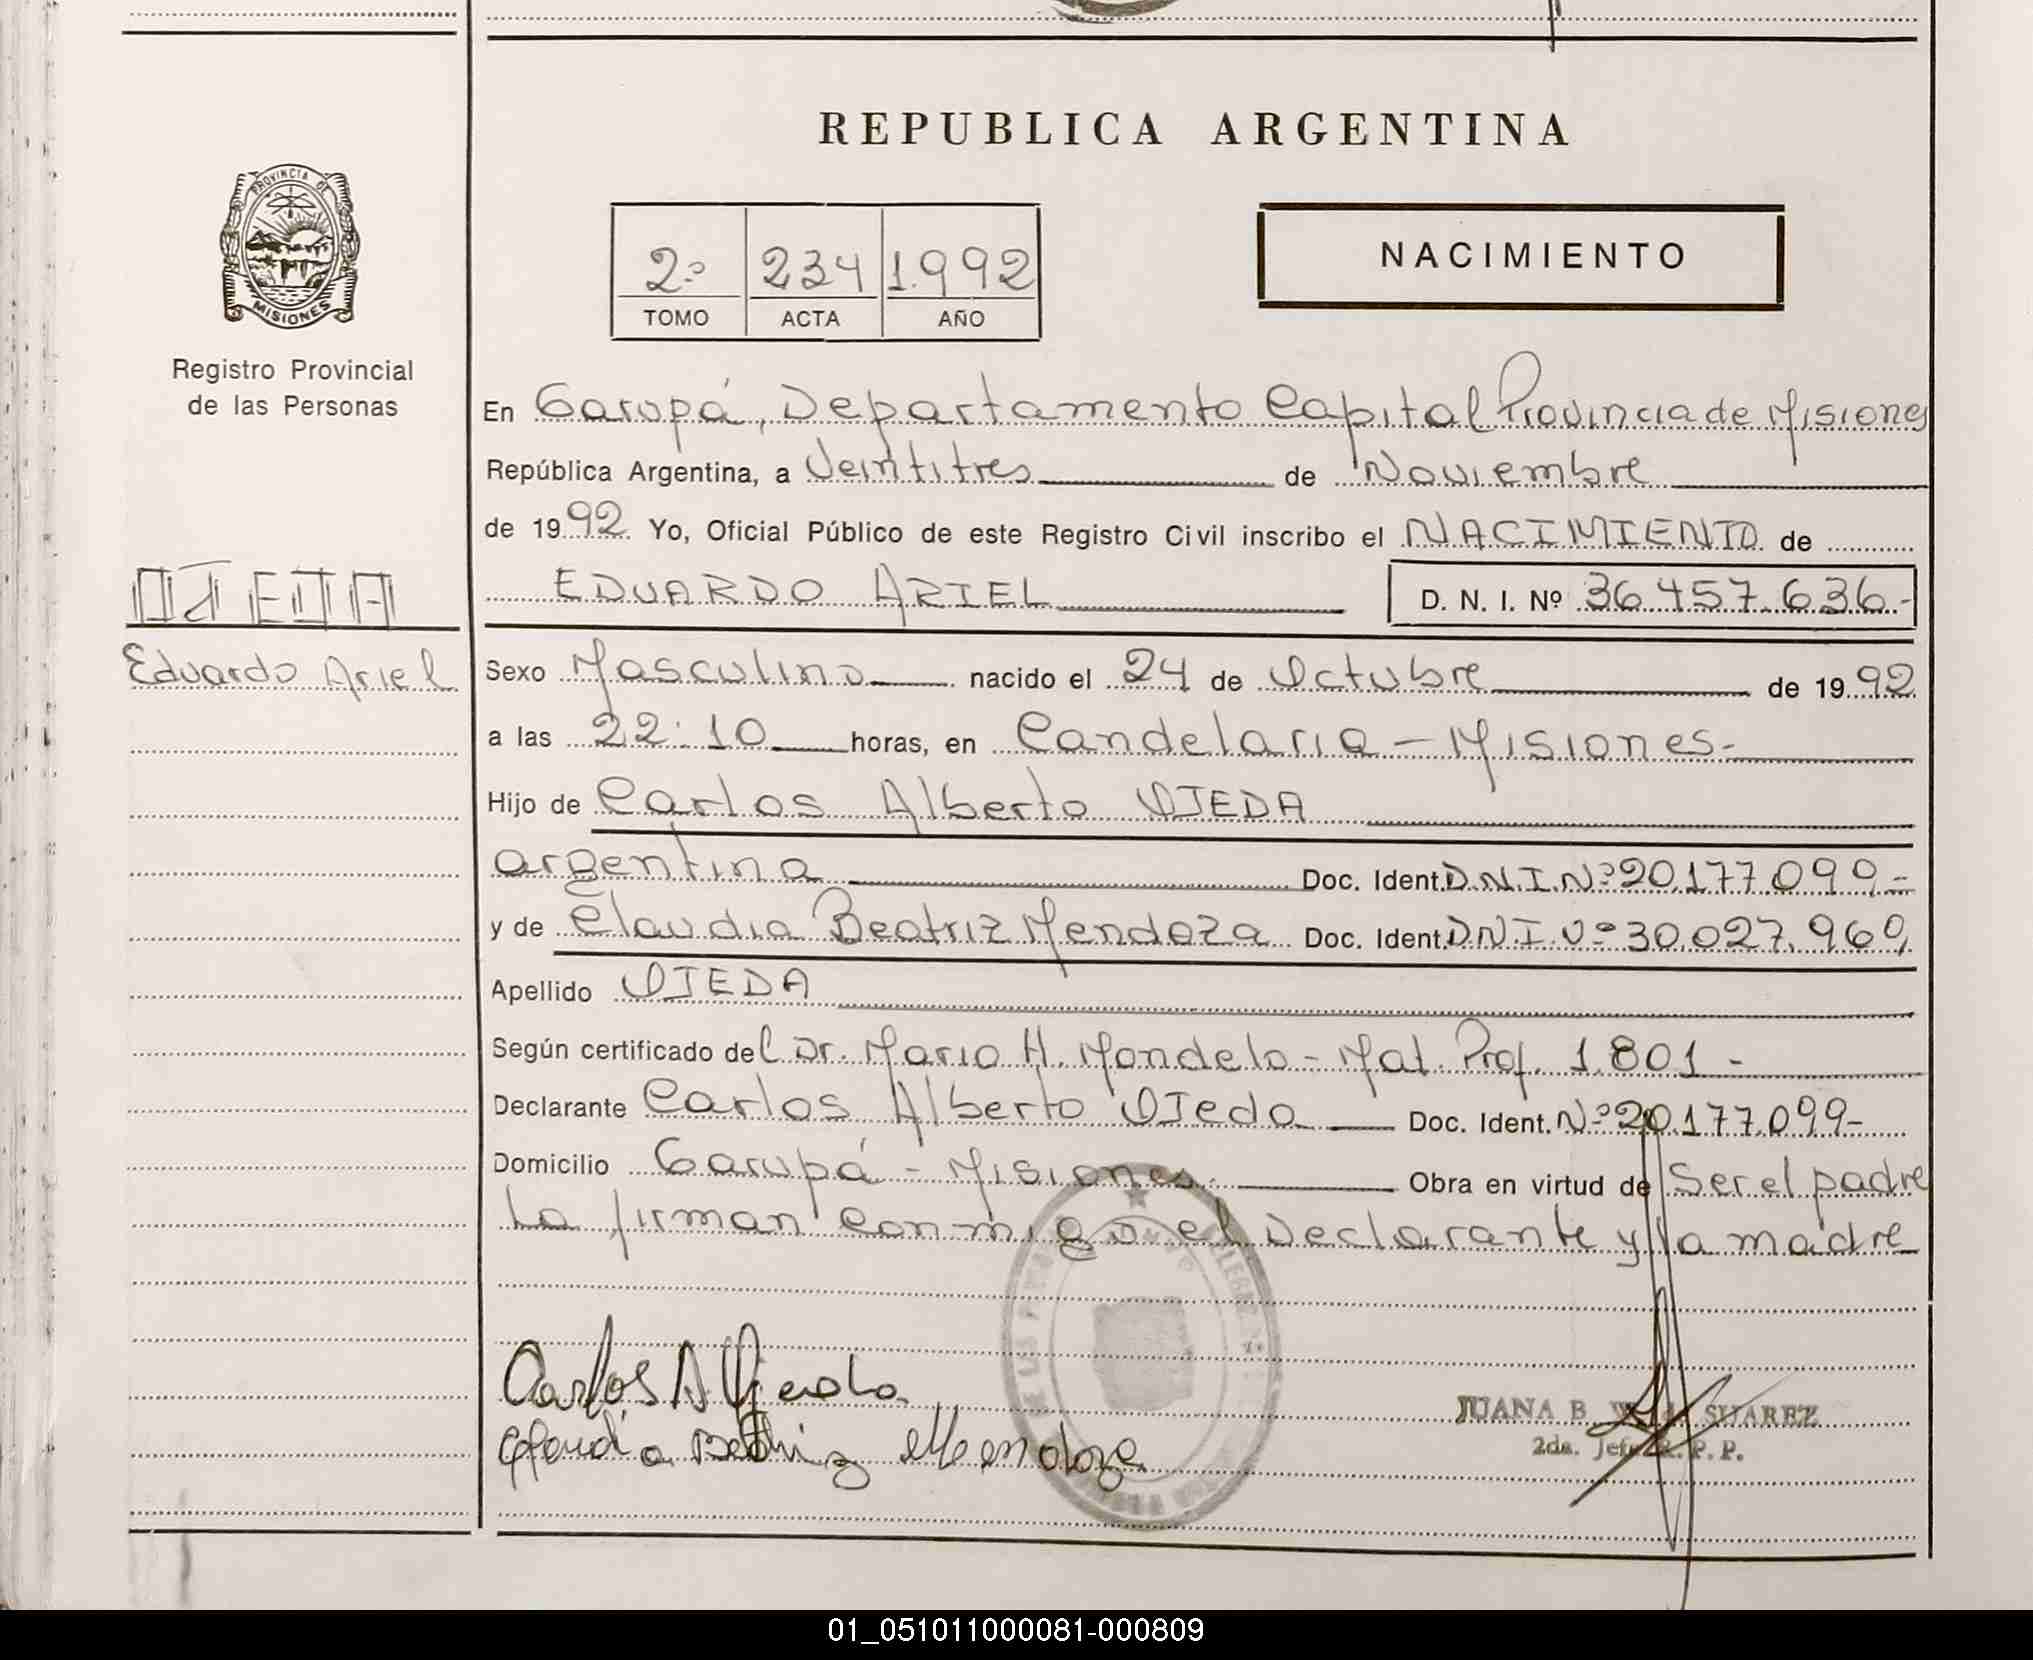 REPUBLICA ARGENTINA
PROVINCIA DE
MISIONES
Registro Provincial
de las Personas
2º 234 1.992
TOMO ACTA AÑO
NACIMIENTO
En Garupá, Departamento Capital Provincia de Misiones
República Argentina, a Veintitres de Noviembre
de 1992 Yo, Oficial Público de este Registro Civil inscribo el NACIMIENTO de
EDUARDO ARIEL D. N. I. Nº 36.457.636.-
OJEDA
Eduardo Ariel
Sexo Masculino nacido el 24 de Octubre de 1992
a las 22:10 horas, en Candelaria - Misiones.-
Hijo de Carlos Alberto OJEDA
argentina Doc. Ident. D.N.I.Nº 20.177.099.-
y de Claudia Beatriz Mendoza Doc. Ident. DNI.Nº 30.027.960
Apellido OJEDA
Según certificado del Dr. Mario H. Mondelo - Mat. Prof. 1.801 -
Declarante Carlos Alberto OJeda Doc. Ident. Nº 20.177.099-
Domicilio Garupá - Misiones. Obra en virtud de Ser el padre
La firman conmigo el Declarante y la madre
Carlos A Ojeda
Claudia Beatriz Mendoza
JUANA B. de SUAREZ
2da. Jefe R.P.P.
01_051011000081-000809